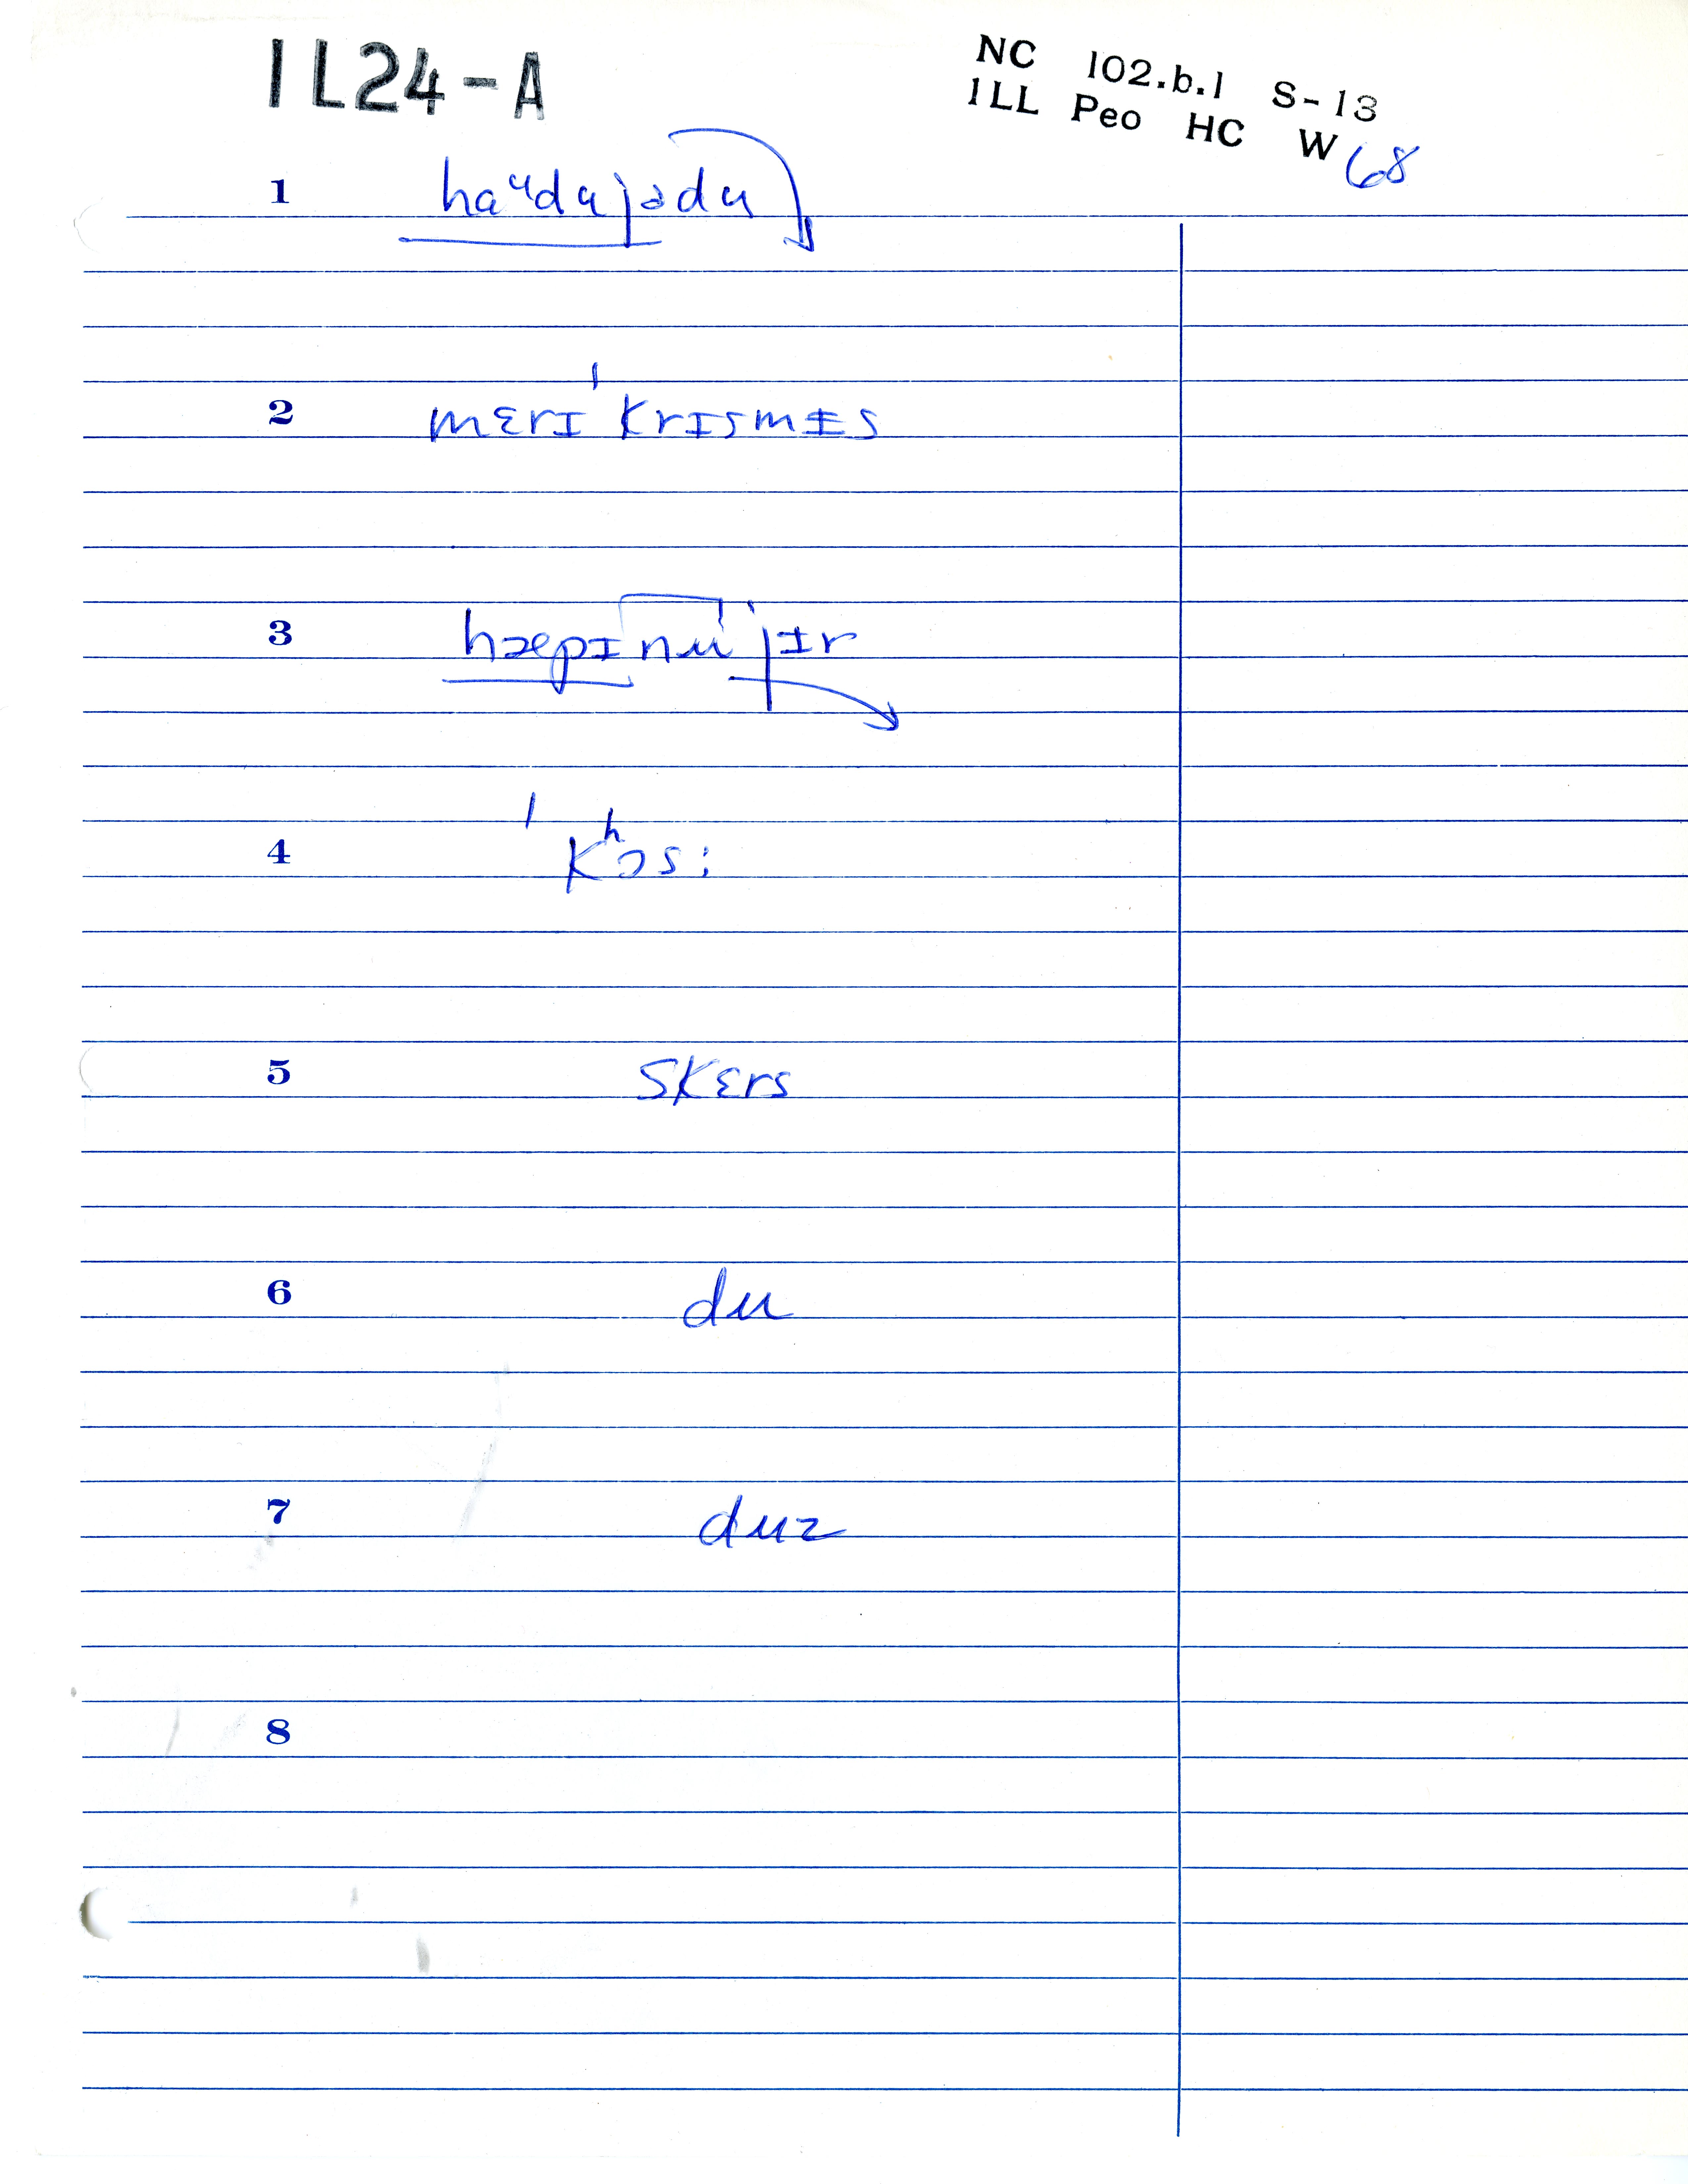 IL24-A
NC 102.b.1 S-13
ILL Peo HC W 68
1 haᵘdujədu
2 mɛrɪ ˈkrɪsmɨs
3 hæpɪ nu ˈjɪr
4 ˈkʰɔs:
5 skɛrs
6 du
7 duz
8